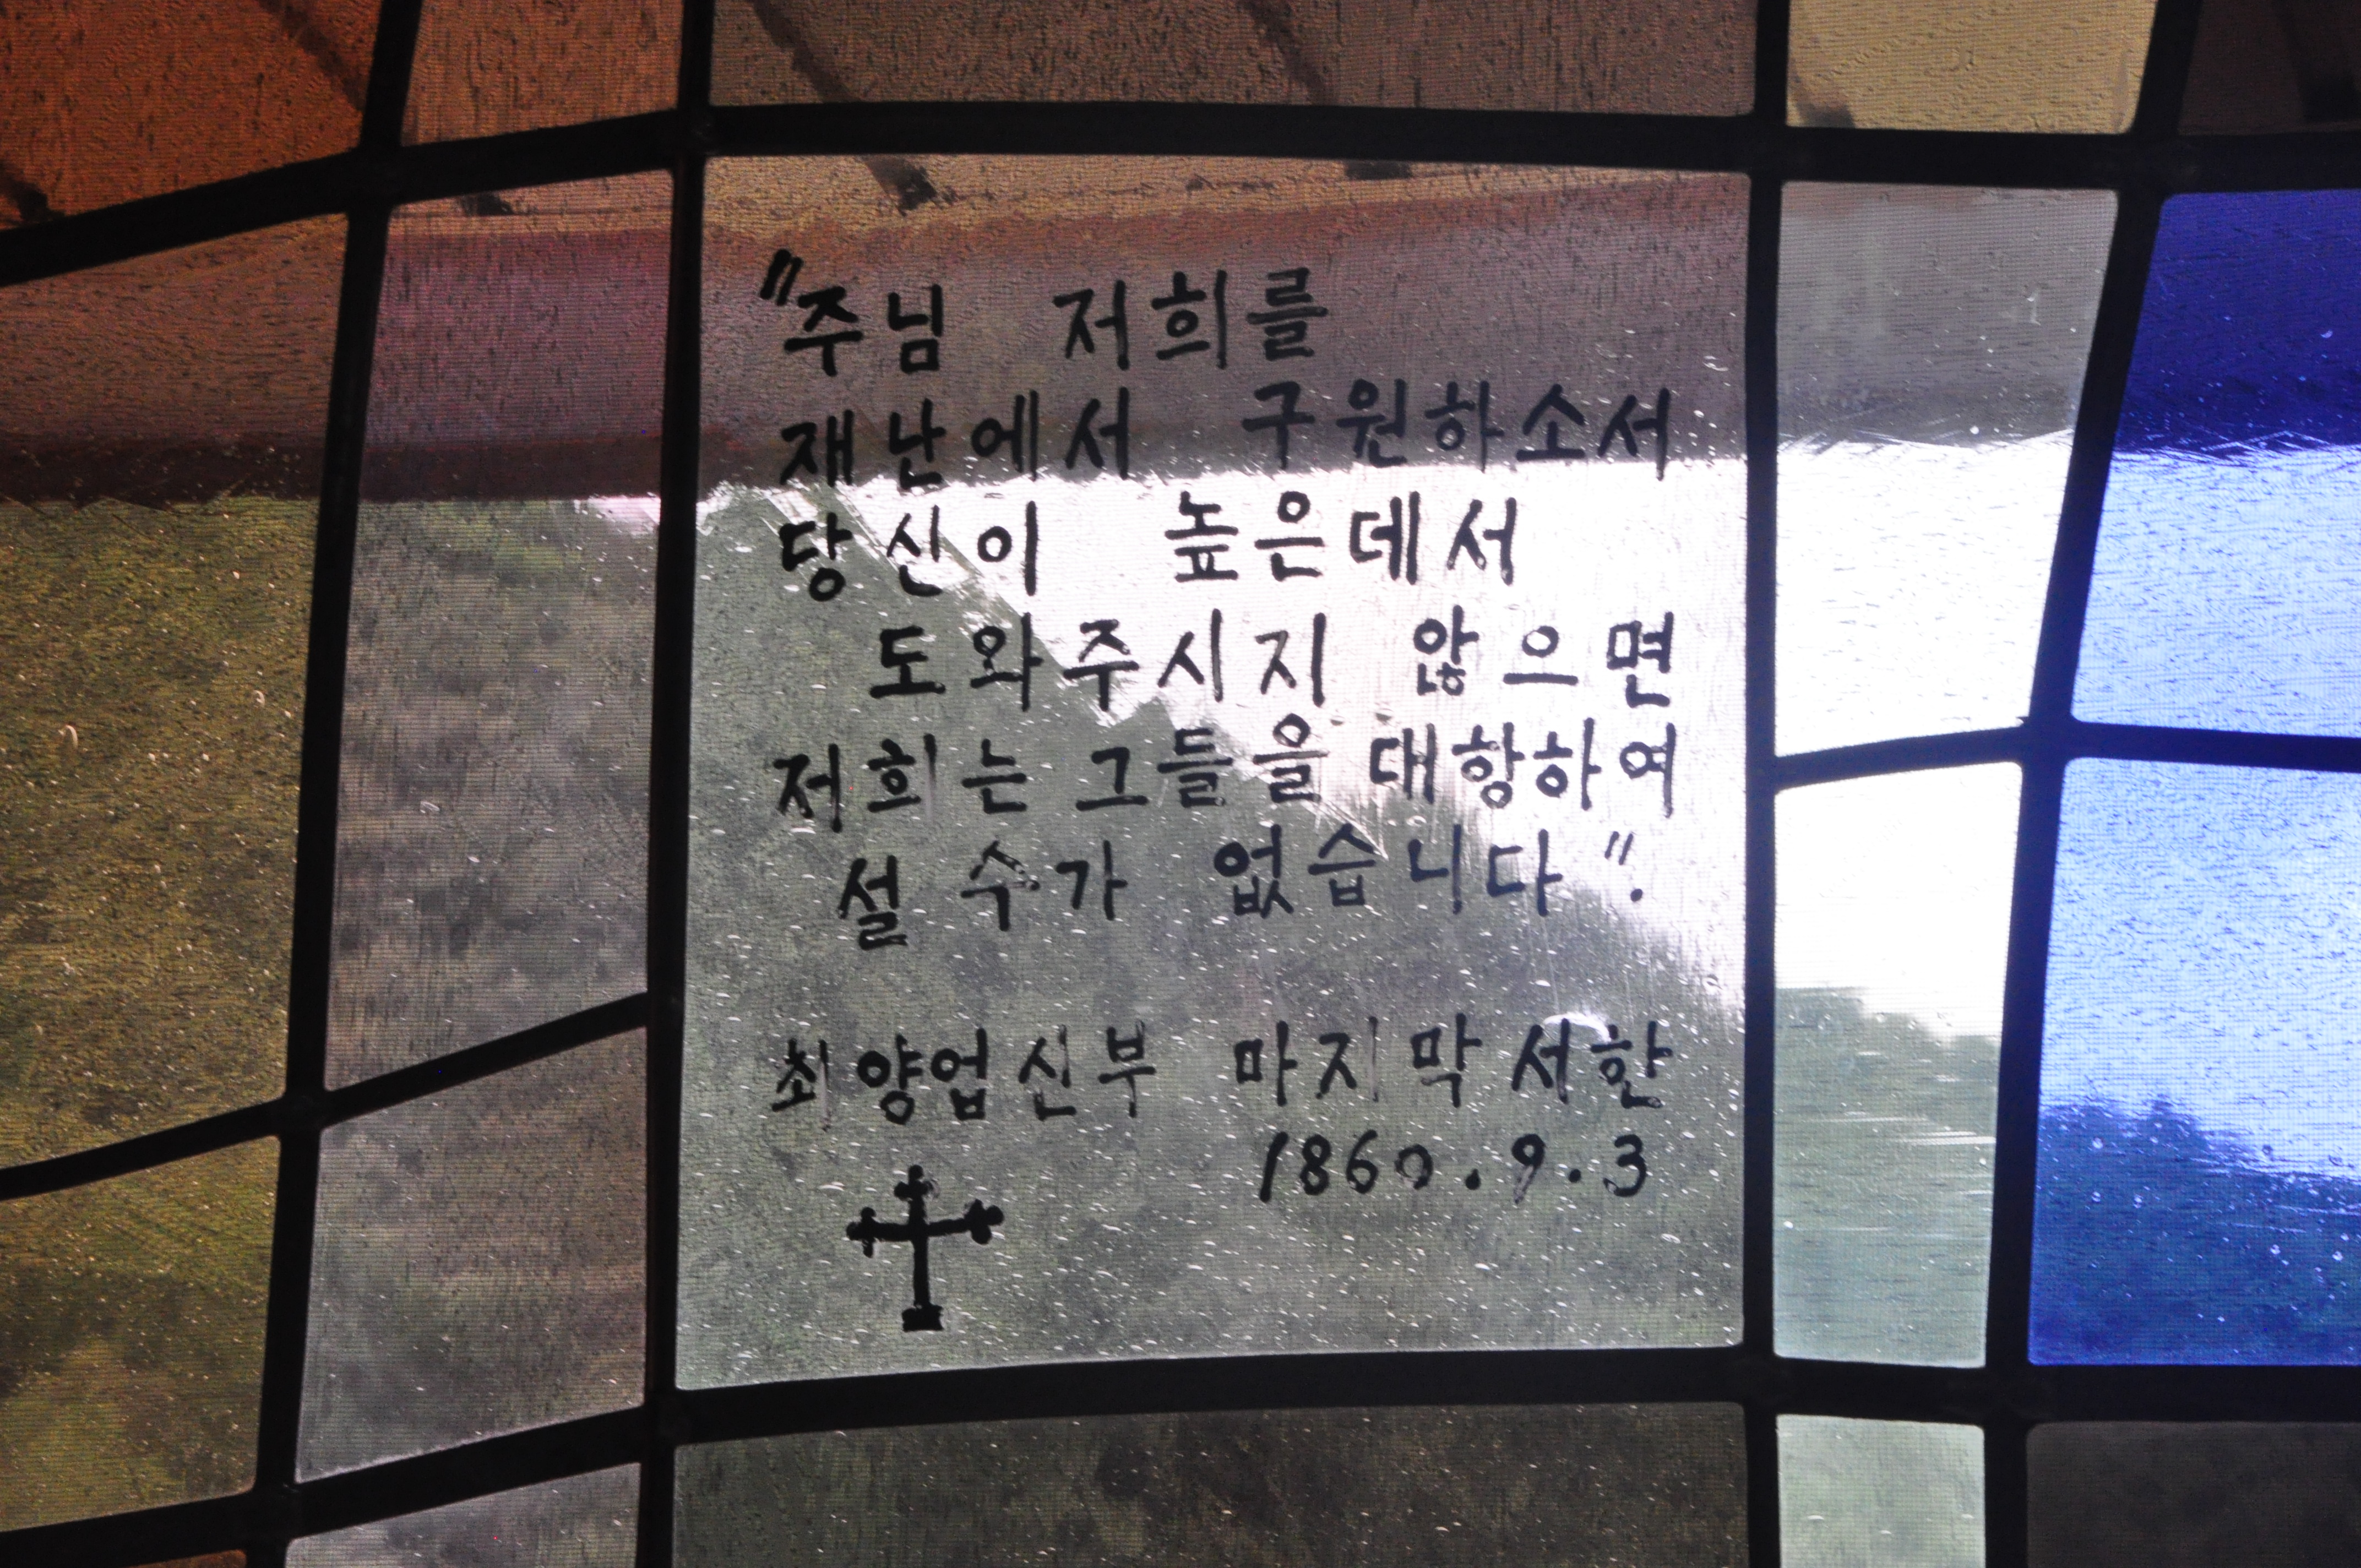 "주님 저희를
재난에서 구원하소서
당신이 높은데서
도와주시지 않으면
저희는 그들을 대항하여
설 수가 없습니다".
최양업신부 마지막 서한
1860.9.3